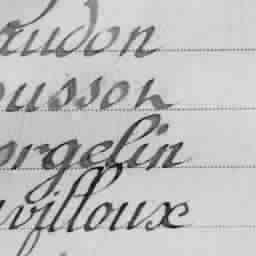 audon
ousson
orgelin
avilloux